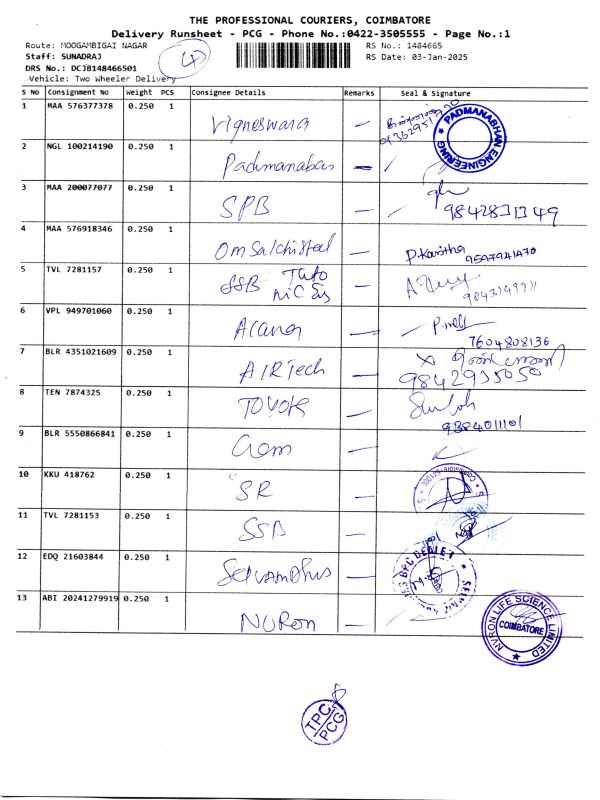 THE PROFESSIONAL COURIERS, COIMBATORE
Delivery Runsheet - PCG - Phone No.:0422-3505555 - Page No.:1
Route: MOOGAMBIGAI NAGAR
Staff: SUNADRAJ
DRS No.: DCJB148466501
Vehicle: Two Wheeler Delivery
RS No.: 1484665
RS Date: 03-Jan-2025
S No Consignment No Weight PCS Consignee Details Remarks Seal & Signature
1 MAA 576377378 0.250 1 Vigneswara
PADMANABHAN ENGINEERING
2 NGL 100214190 0.250 1 Padmanabas
3 MAA 200077077 0.250 1 SPB 9842831349
4 MAA 576918346 0.250 1 P.Kavitha 9597941470
5 TVL 7281157 0.250 1 SSB
6 VPL 949701060 0.250 1 7604808136
7 BLR 4351021609 0.250 1 AIRTech 9842935050
8 TEN 7874325 0.250 1 TOYOTA 9384011101
9 BLR 5550866841 0.250 1 Gem
10 KKU 418762 0.250 1 SR
11 TVL 7281153 0.250 1 SSB
12 EDQ 21603844 0.250 1
BPC DEALER
13 ABI 20241279919 0.250 1 NURON
NVRON LIFE SCIENCE LIMITED
COIMBATORE
TPC
PCG